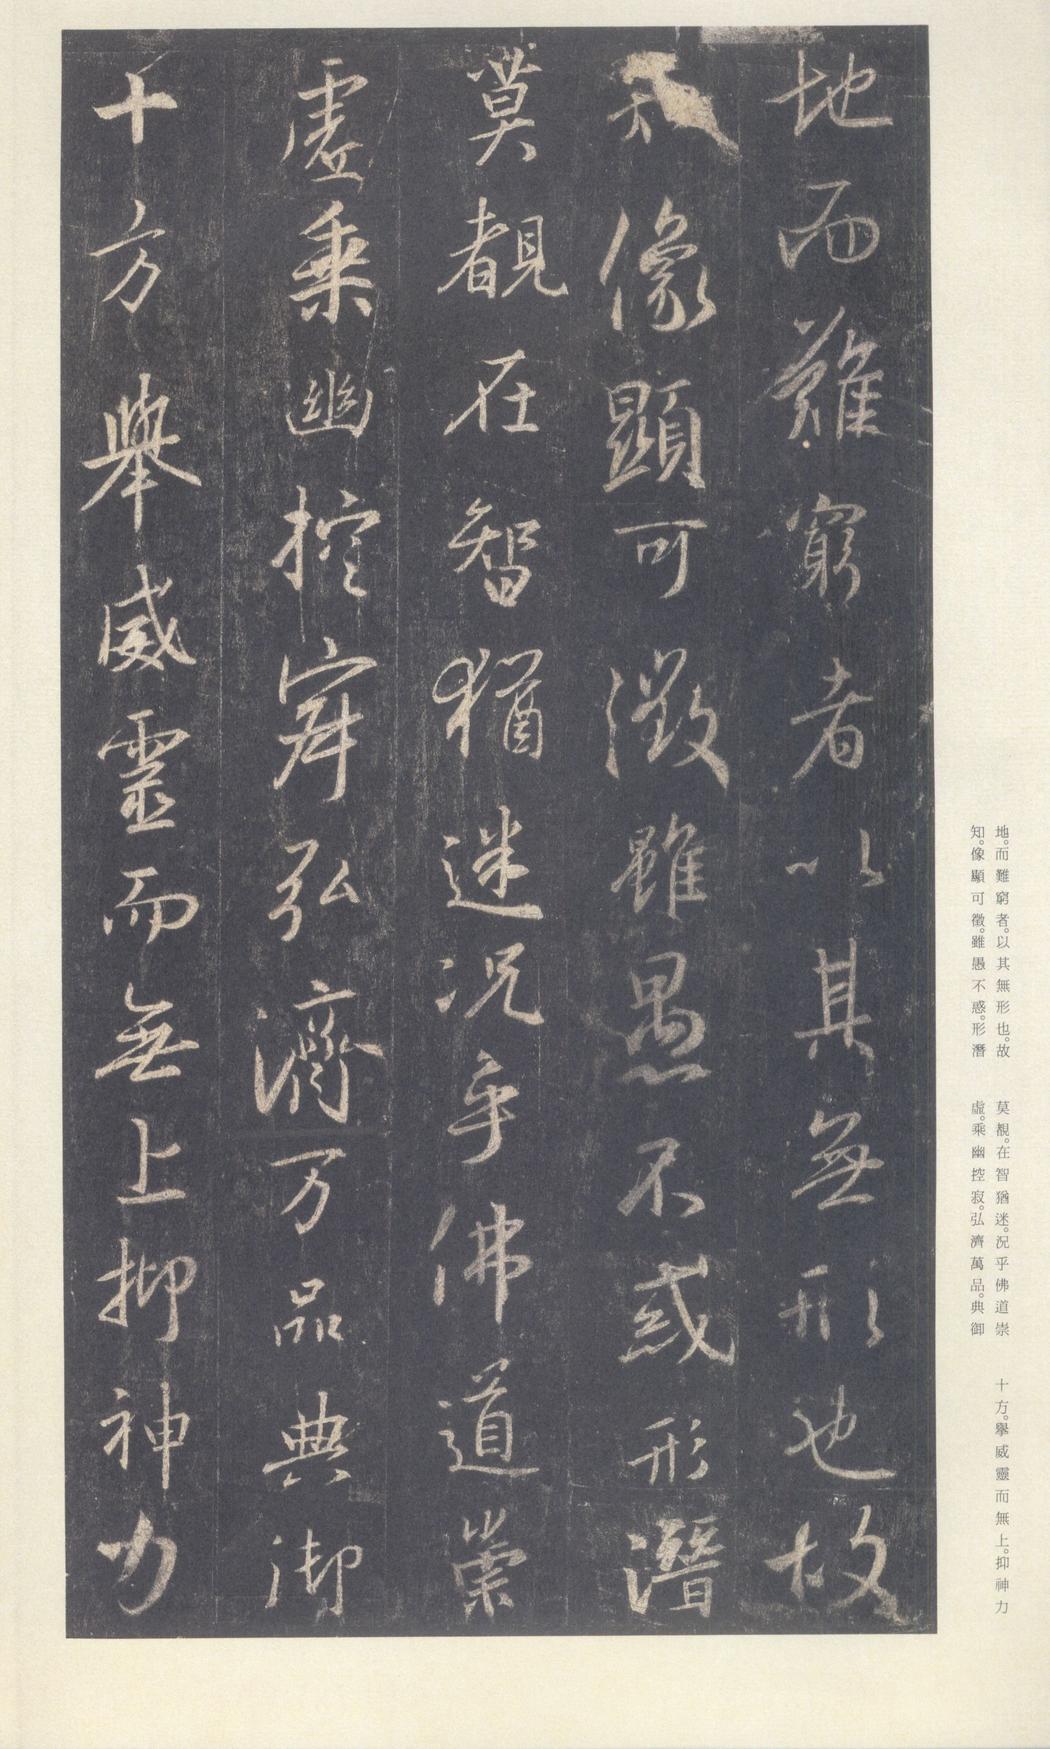 地而難窮者以其無形也故
知像顯可徵雖愚不惑形潛
莫覩在智猶迷況乎佛道崇
虛乘幽控寂弘濟万品典御
十方舉威靈而無上抑神力
地。而難窮者。以其無形也。故
知。像顯可徵。雖愚不惑。形潛
莫覩。在智猶迷。況乎佛道崇
虛。乘幽控寂。弘濟萬品。典御
十方。舉威靈而無上。抑神力